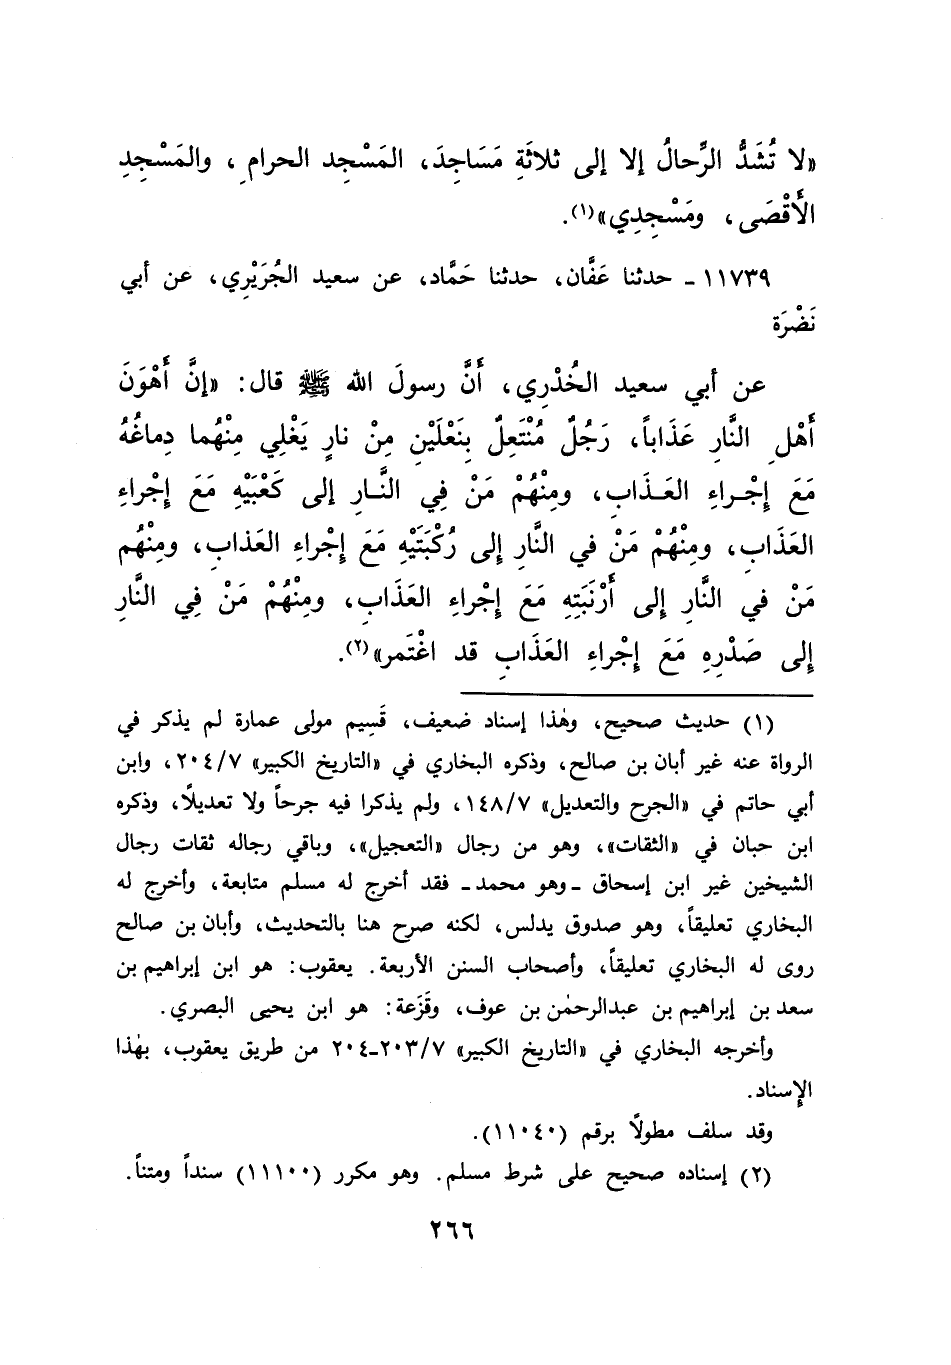 «لا تُشَدُّ الرِّحالُ إلا إلى ثلاثَةِ مَسَاجِدَ، المَسْجِد الحرامِ، والمَسْجِدِ
الأَقْصَى، ومَسْجِدِي»(١).
١١٧٣٩ - حدثنا عَفَّان، حدثنا حَمَّاد، عن سعيد الجُرَيْرِي، عن أبي
نَضْرَة
عن أبي سعيد الخُدْرِي، أَنَّ رسولَ الله ﷺ قال: «إنَّ أَهْوَنَ
أَهْلِ النَّارِ عَذَاباً، رَجُلٌ مُنْتَعِلٌ بِنَعْلَيْنِ مِنْ نارٍ يَغْلِي مِنْهُما دِماغُهُ
مَعَ إِجْراءِ العَذَابِ، ومِنْهُمْ مَنْ فِي النَّارِ إلى كَعْبَيْهِ مَعَ إِجْراءِ
العَذَابِ، ومِنْهُمْ مَنْ في النَّارِ إلى رُكْبَتَيْهِ مَعَ إِجْراءِ العَذابِ، ومِنْهُم
مَنْ في النَّارِ إلى أَرْنَبَتِهِ مَعَ إِجْراءِ العَذَابِ، ومِنْهُمْ مَنْ فِي النَّارِ
إلى صَدْرِهِ مَعَ إِجْراءِ العَذَابِ قد اغْتَمر»(٢).
(١) حديث صحيح، وهٰذا إسناد ضعيف، قَسِيم مولى عمارة لم يذكر في
الرواة عنه غير أبان بن صالح، وذكره البخاري في «التاريخ الكبير» ٢٠٤/٧، وابن
أبي حاتم في «الجرح والتعديل» ١٤٨/٧، ولم يذكرا فيه جرحاً ولا تعديلاً، وذكره
ابن حبان في «الثقات»، وهو من رجال «التعجيل»، وباقي رجاله ثقات رجال
الشيخين غير ابن إسحاق -وهو محمد- فقد أخرج له مسلم متابعة، وأخرج له
البخاري تعليقاً، وهو صدوق يدلس، لكنه صرح هنا بالتحديث، وأبان بن صالح
روى له البخاري تعليقاً، وأصحاب السنن الأربعة. يعقوب: هو ابن إبراهيم بن
سعد بن إبراهيم بن عبدالرحمٰن بن عوف، وقَزَعة: هو ابن يحيى البصري.
وأخرجه البخاري في «التاريخ الكبير» ٢٠٣/٧-٢٠٤ من طريق يعقوب، بهٰذا
الإسناد.
وقد سلف مطولاً برقم (١١٠٤٠).
(٢) إسناده صحيح على شرط مسلم. وهو مكرر (١١١٠٠) سنداً ومتناً.
٢٦٦